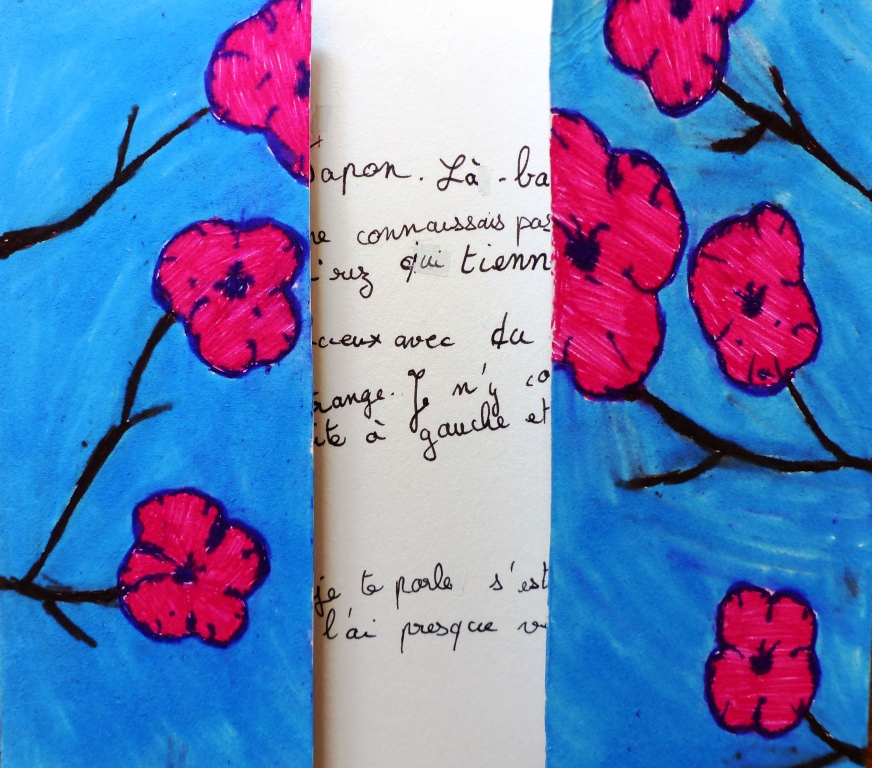 Japon. Là-ba
ne connaissais pas
irez qui tienn
cieux avec du
range. Je n'y co
ite à gauche et
je te parle s'est
l'ai presque v